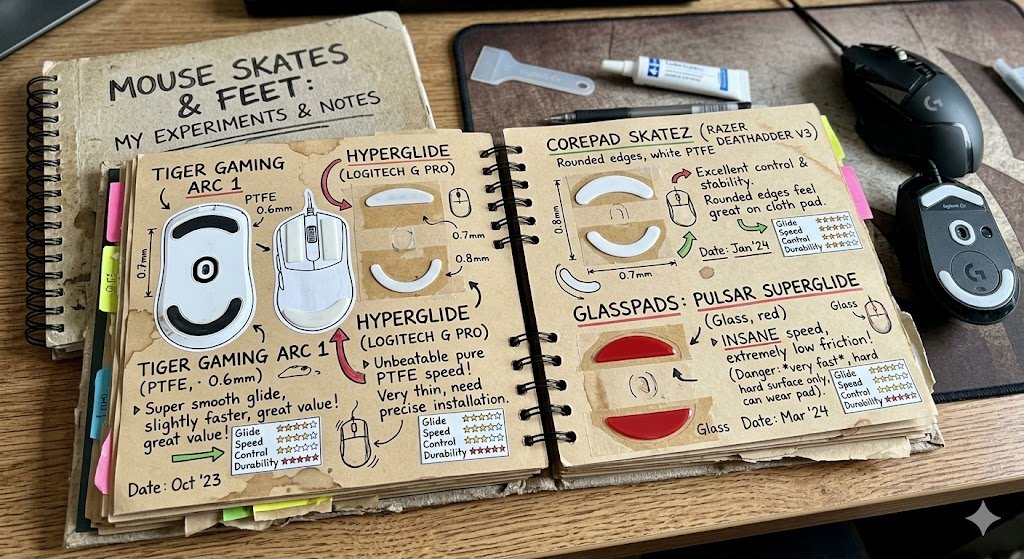 MOUSE SKATES
& FEET:
MY EXPERIMENTS & NOTES
TIGER GAMING
ARC 1
PTFE
0.6mm
0.7mm
HYPERGLIDE
(LOGITECH G PRO)
0.7mm
0.8mm
TIGER GAMING ARC 1
(PTFE, · 0.6mm)
Super smooth glide,
slightly faster, great value!
great value!
Glide
Speed
Control
Durability
Date: Oct '23
HYPERGLIDE
(LOGITECH G PRO)
Unbeatable pure
PTFE speed!
Very thin, need
precise installation.
Glide
Speed
Control
Durability
COREPAD SKATEZ (RAZER
DEATHADDER V3)
Rounded edges, white PTFE
0.8mm
0.7mm
Excellent control &
stability.
Rounded edges feel
great on cloth pad.
Date: Jan '24
Glide
Speed
Control
Durability
GLASSPADS: PULSAR SUPERGLIDE
(Glass, red)
Glass
INSANE speed,
extremely low friction!
(Danger: *very fast*, hard
hard surface only,
can wear pad).
Glass
Date: Mar '24
Glide
Speed
Control
Durability
G
G